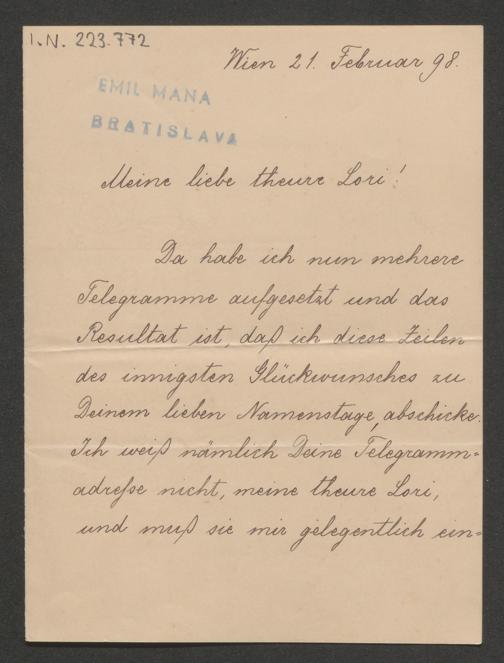 I.N. 223.772
Wien 21. Februar 98.
EMIL MANA
BRATISLAVA
Meine liebe theure Lori!
Da habe ich nun mehrere
Telegramme aufgesetzt und das
Resultat ist, daß ich diese Zeilen
des innigsten Glückwunsches zu
Deinem lieben Namenstage, abschicke.
Ich weiß nämlich Deine Telegramm=
adreſse nicht, meine theure Lori,
und muß sie mir gelegentlich ein=